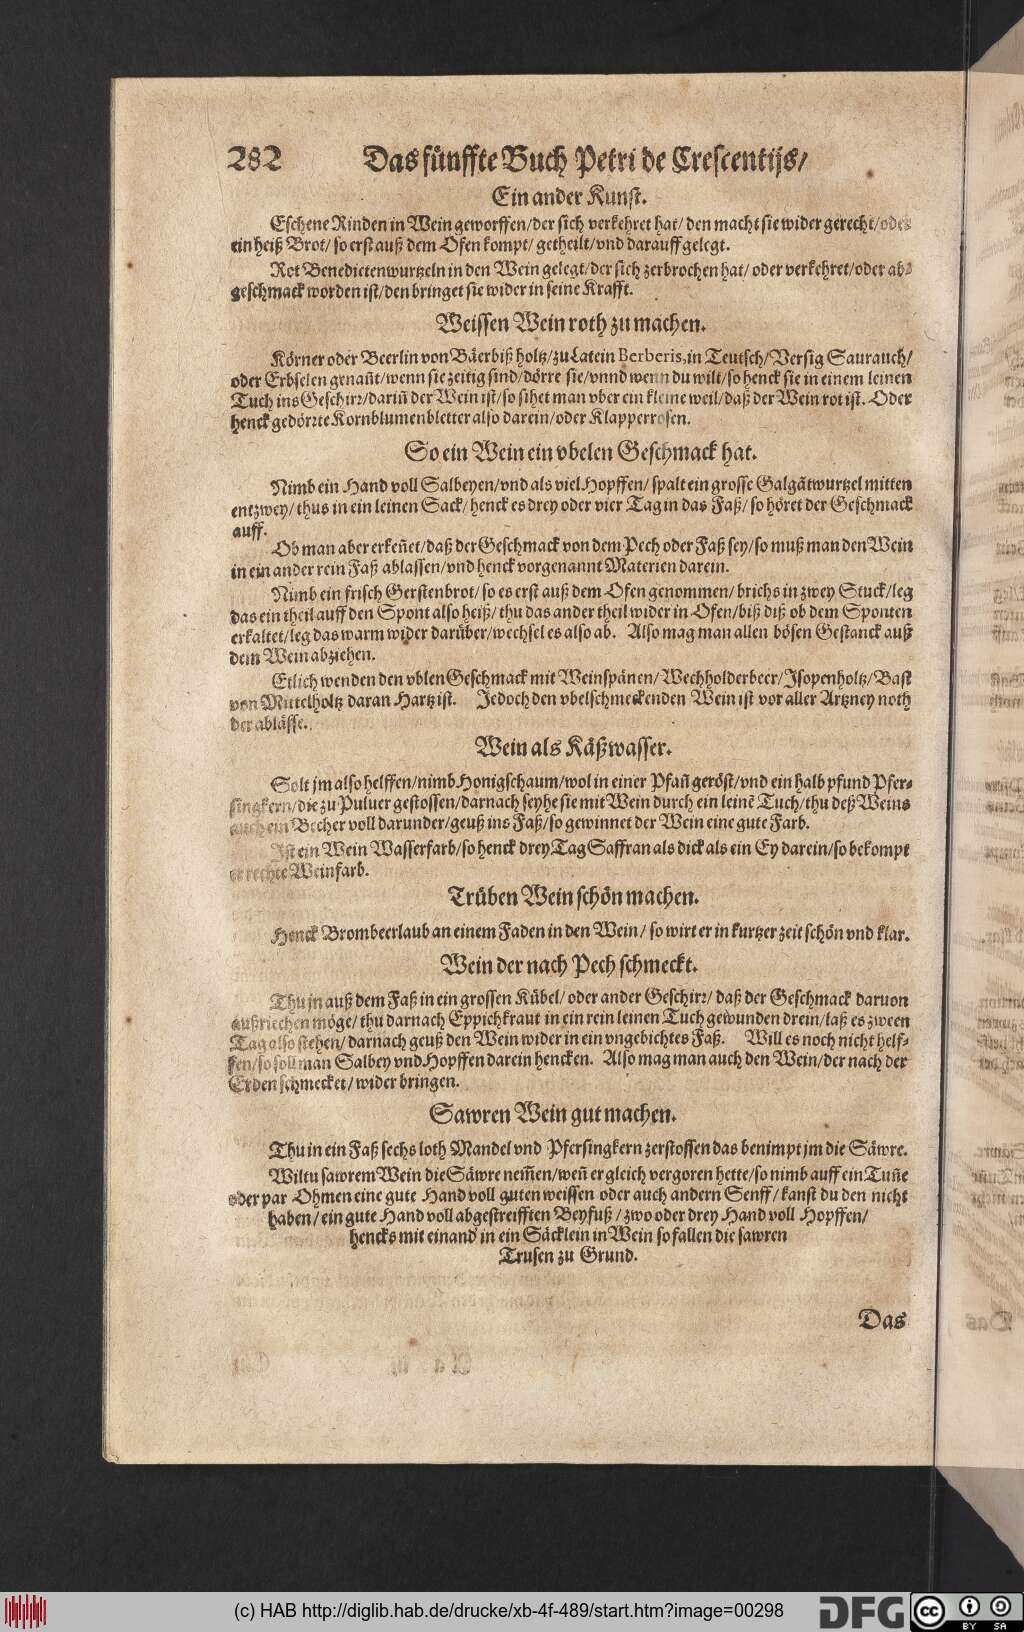 282 Das fünffte Buch Petri de Crescentijs/
Ein ander Kunst.
Eschene Rinden in Wein geworffen/der sich verkehret hat/ den macht sie wider gerecht/oder
ein heiß Brot/ so erst auß dem Ofen kompt/ getheilt/vnd darauff gelegt.
Rot Benedictenwurtzeln in den Wein gelegt/der sich zerbrochen hat/ oder verkehret/oder ab-
geschmack worden ist/den bringet sie wider in seine Krafft.
Weissen Wein roth zu machen.
Körner oder Beerlin von Bäerbiß holtz/zu Latein Berberis, in Teutsch/Versig Saurauch/
oder Erbselen genañt/wenn sie zeitig sind/dörre sie/vnnd wenn du wilt/so henck sie in einem leinen
Tuch ins Geschirr/dariñ der Wein ist/so sihet man vber ein kleine weil/daß der Wein rot ist. Oder
henck gedörrte Kornblumenbletter also darein/oder Klapperrosen.
So ein Wein ein vbelen Geschmack hat.
Nimb ein Hand voll Salbeyen/vnd als viel Hopffen/ spalt ein grosse Galgãtwurtzel mitten
entzwey/ thus in ein leinen Sack/ henck es drey oder vier Tag in das Faß/ so höret der Geschmack
auff.
Ob man aber erkeñet/daß der Geschmack von dem Pech oder Faß sey/so muß man den Wein
in ein ander rein Faß ablassen/vnd henck vorgenannt Materien darein.
Nimb ein frisch Gerstenbrot/ so es erst auß dem Ofen genommen/ brichs in zwey Stuck/leg
das ein theil auff den Spont also heiß/ thu das ander theil wider in Ofen/biß diß ob dem Sponten
erkaltet/leg das warm wider darüber/wechsel es also ab. Also mag man allen bösen Gestanck auß
dem Wein abziehen.
Etlich wenden den vblen Geschmack mit Weinspänen/ Wechholderbeer/Isopenholtz/Bast
von Mittelholtz daran Hartz ist. Jedoch den vbelschmeckenden Wein ist vor aller Artzney noth
der ablässe.
Wein als Käßwasser.
Solt jm also helffen/nimb Honigschaum/wol in einer Pfañ geröst/vnd ein halb pfund Pfer-
singkern/die zu Puluer gestossen/darnach seyhe sie mit Wein durch ein leinẽ Tuch/thu deß Weins
auch ein Becher voll darunder/geuß ins Faß/so gewinnet der Wein eine gute Farb.
Ist ein Wein Wasserfarb/so henck drey Tag Saffran als dick als ein Ey darein/so bekompt
er rechte Weinfarb.
Trüben Wein schön machen.
Henck Brombeerlaub an einem Faden in den Wein/ so wirt er in kurtzer zeit schön vnd klar.
Wein der nach Pech schmeckt.
Thu jn auß dem Faß in ein grossen Kübel/ oder ander Geschirr/ daß der Geschmack daruon
außriechen möge/ thu darnach Eppichkraut in ein rein leinen Tuch gewunden drein/laß es zween
Tag also stehen/ darnach geuß den Wein wider in ein vngebichtes Faß. Will es noch nicht helf-
fen/so soll man Salbey vnd Hopffen darein hencken. Also mag man auch den Wein/der nach der
Erden schmecket/ wider bringen.
Sawren Wein gut machen.
Thu in ein Faß sechs loth Mandel vnd Pfersingkern zerstossen das benimpt jm die Säwre.
Wiltu sawrem Wein die Säwre nem̃en/weñ er gleich vergoren hette/so nimb auff ein Tuñe
oder par Ohmen eine gute Hand voll guten weissen oder auch andern Senff/ kanst du den nicht
haben/ ein gute Hand voll abgestreifften Beyfuß/ zwo oder drey Hand voll Hopffen/
hencks mit einand in ein Säcklein in Wein so fallen die sawren
Trusen zu Grund.
Das
(c) HAB http://diglib.hab.de/drucke/xb-4f-489/start.htm?image=00298
DFG
cc BY SA